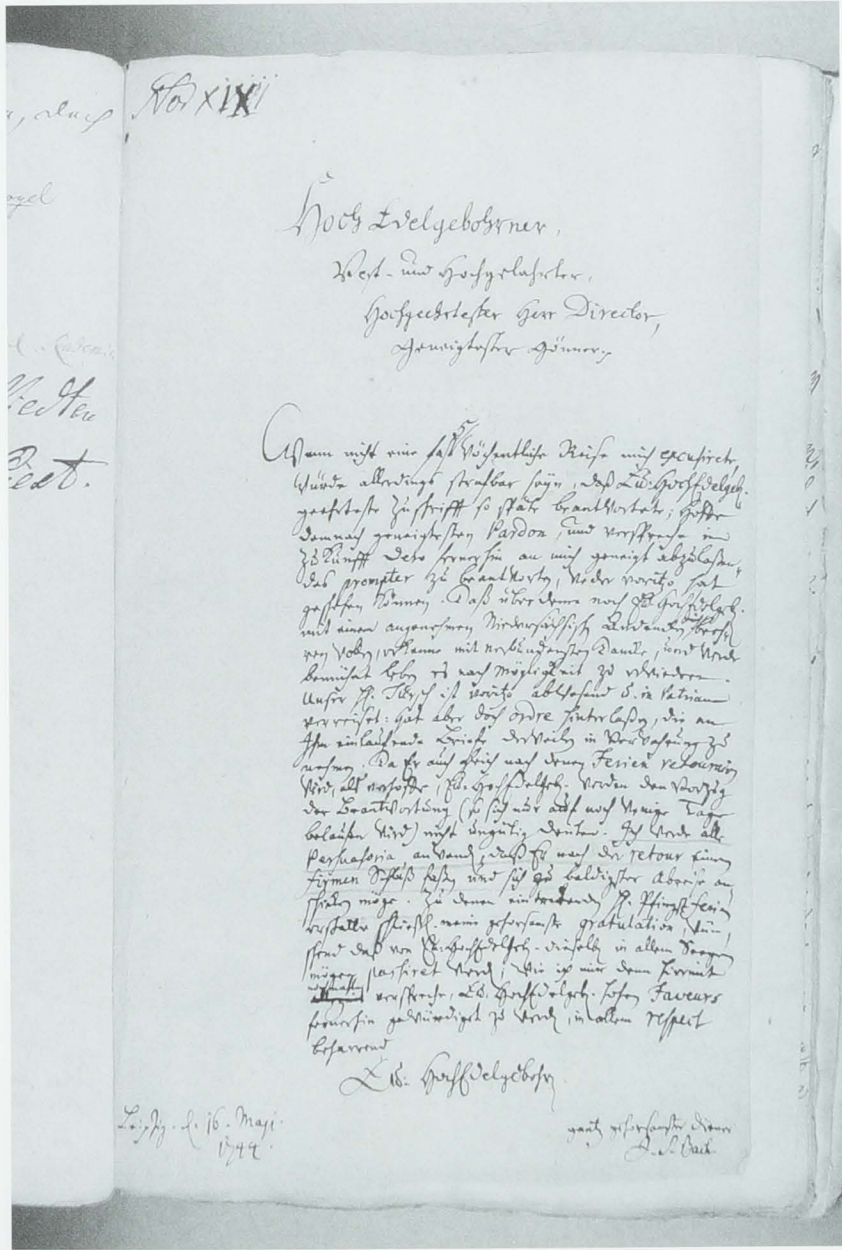 Hoch Edelgebohrner,
Vest- und Hochgelahrter,
Hochgeehrtester Herr Director,
Geneigtester Gönner.
Wenn nicht eine fast 5 Wöchentliche Reise mich excusirete,
würde allerdings strafbar seyn, daß Eu: HochEdelgeb.
geehrteste Zuschrifft so späte beantwortete; Hoffe
demnach geneigtesten Pardon, und verspreche in
Zukunfft dero fernerhin an mich geneigt abzulaßen-
des prompter zu beantworten, weder voritzo hat
geschehen können. Daß über deme noch Eu: HochEdelgeb.
mit einen angenehmen Niedersächsisch Andencken mich
ren wollen, erkenne mit verbundensten Dancke, und werde
bemühet leben es nach Mögligkeit zu erwiedern.
Unser H. ist voritzo abwesend u. in Patriam
verreiset: hat aber doch ordre hinterlaßen, die an
Ihm einlaufende Briefe derweilen in Verwahrung zu
nehmen. Da Er auch gleich nach denen Ferien retourniren
wird, als verhoffe, Eu: HochEdelgeb. werden den Verzug
der Beantwortung (so sich nur auf noch wenige Tage
belaufen wird) nicht ungütig deuten. Ich werde alle
Persuasoria anwenden, daß Er nach der retour einen
firmen Schluß faßen und sich zu baldigster Abreise an-
schicken möge. Zu denen eintretenden H. Pfingst Ferien
erstatte schließl. meine gehorsamste gratulation, wün-
schend daß von Eu: HochEdelgeb. dieselben in allem Seegen
mögen passiret werden; Wie ich mir denn hiermit
verspreche, Eu: HochEdelgeb. hohen Faveurs
fernerhin gewürdiget zu werden, in allem respect
beharrend
Eu: HochEdelgebohrn
Leipzig. d. 16. Maji
1744
gantz gehorsamster Diener
J. S. Bach